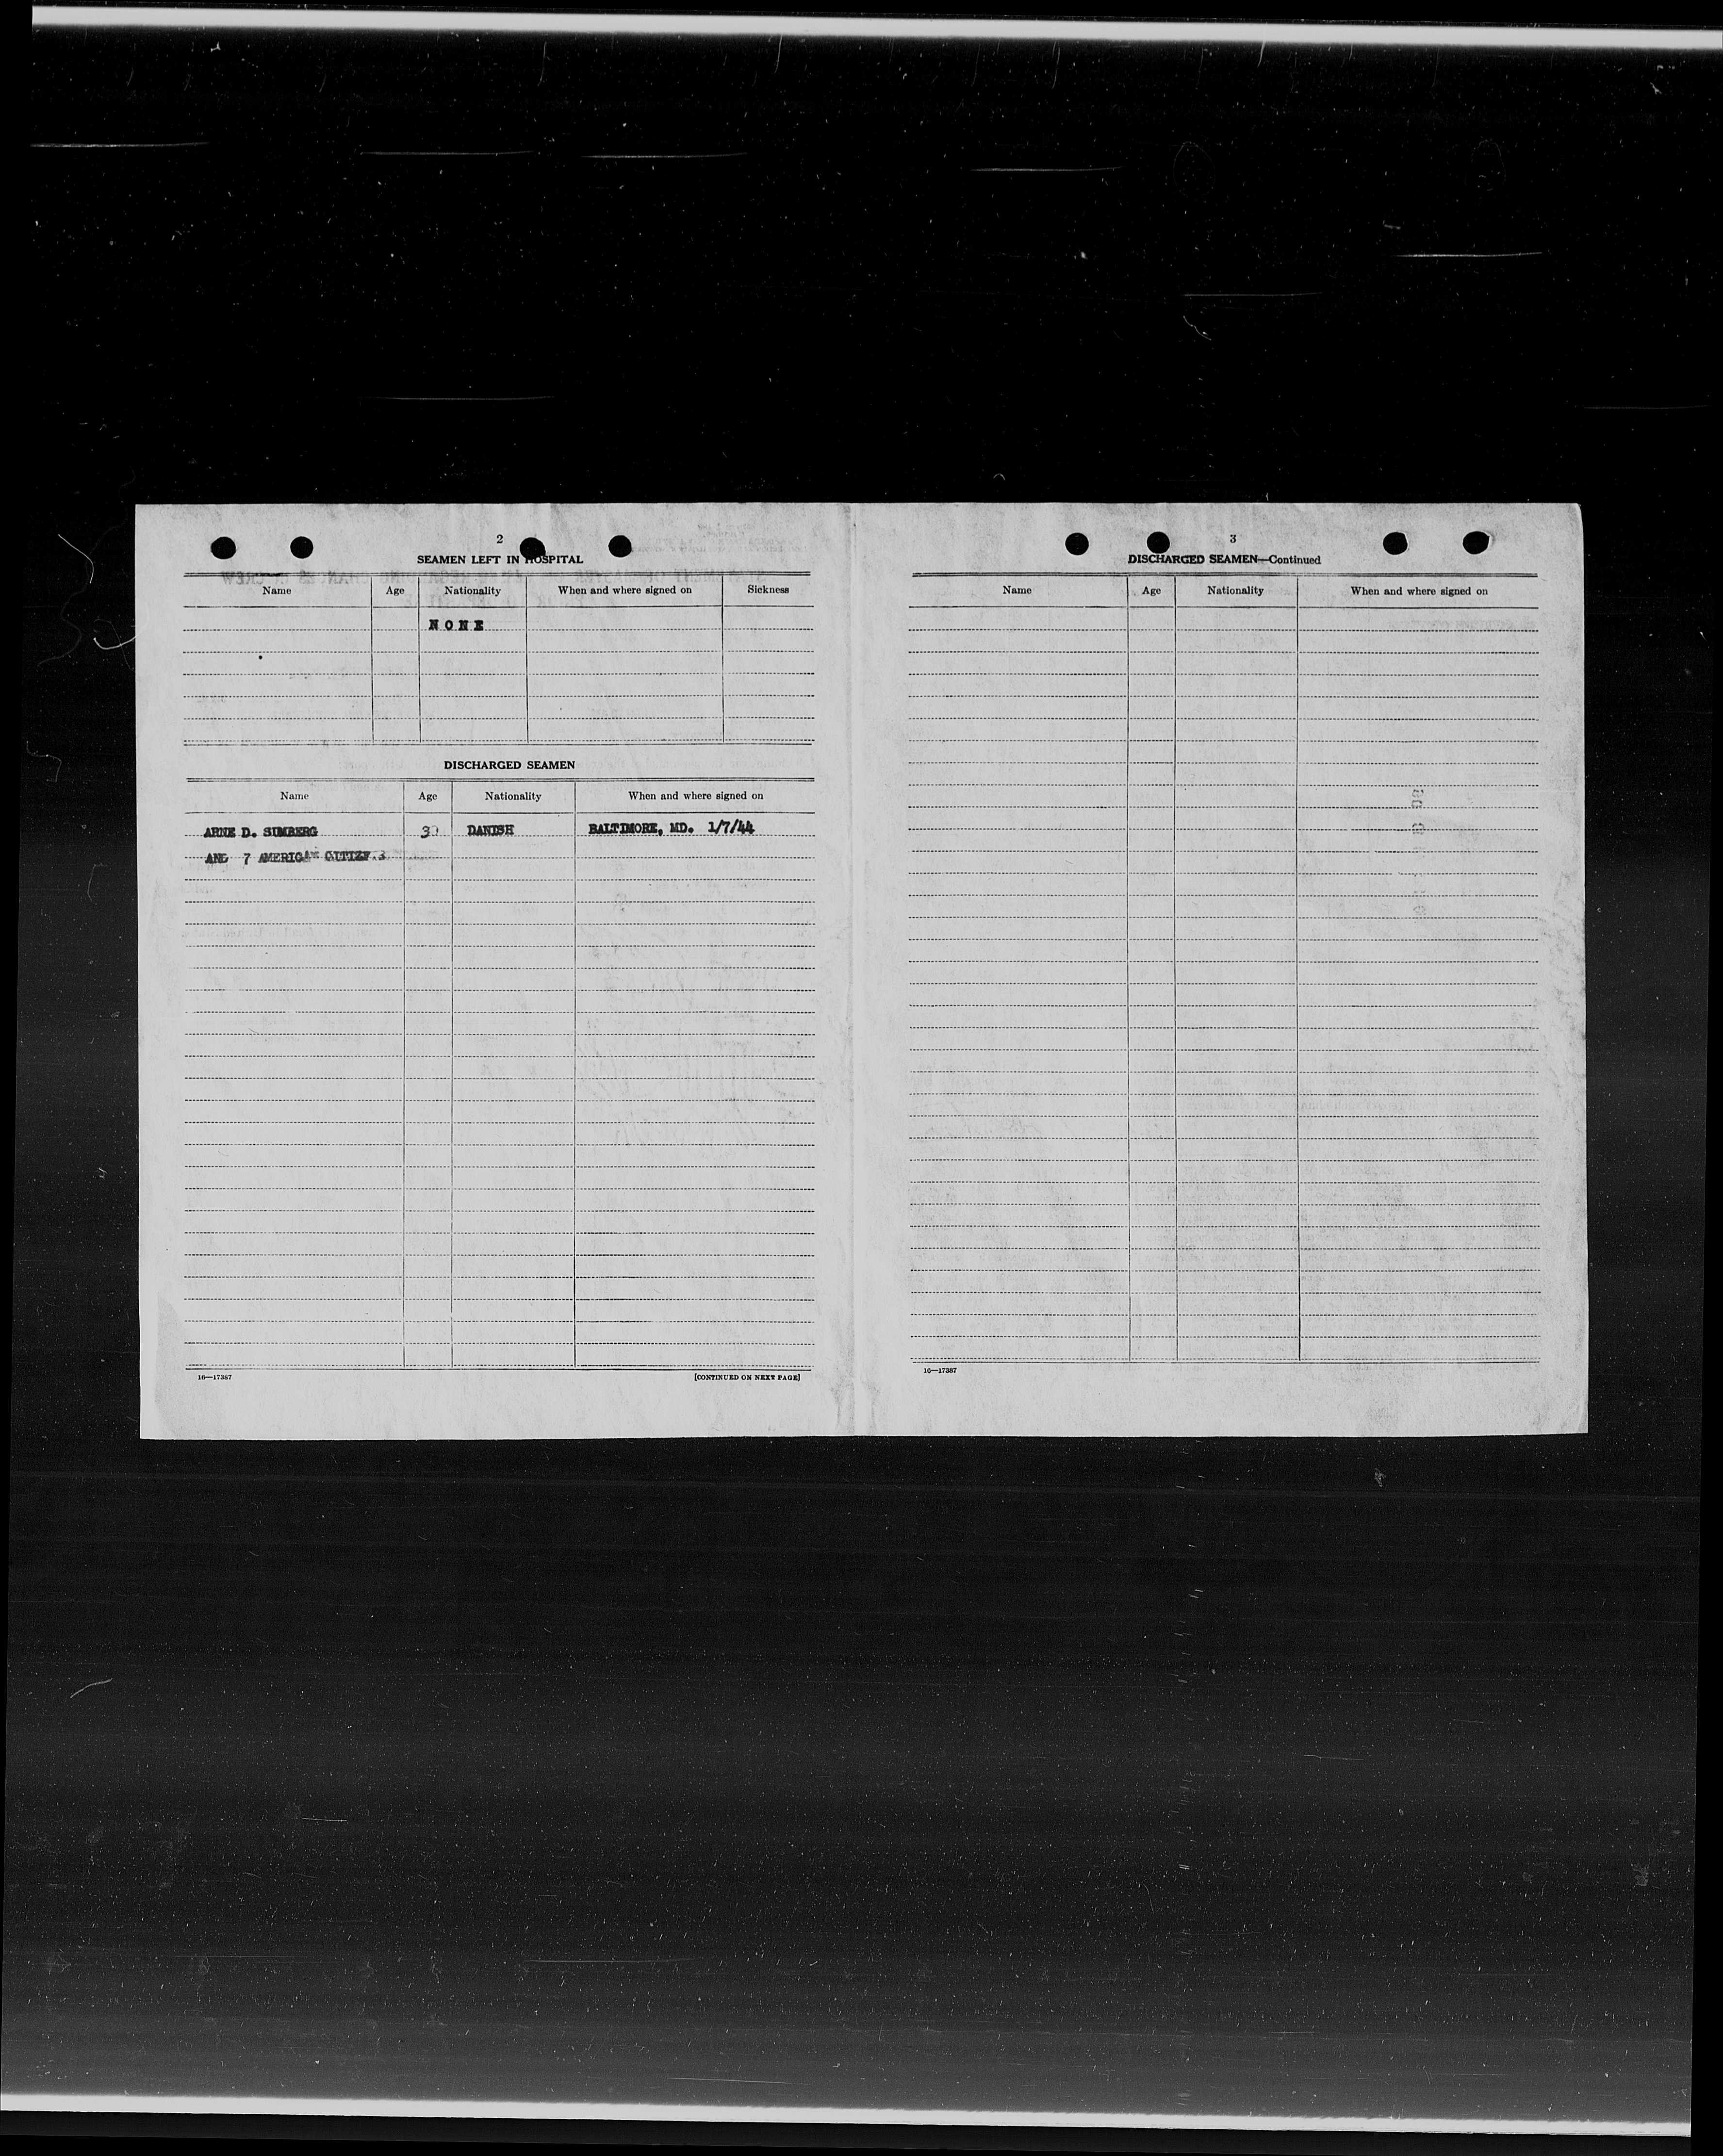 2
SEAMEN LEFT IN HOSPITAL
Name Age Nationality When and where signed on Sickness
NONE
DISCHARGED SEAMEN
Name Age Nationality When and where signed on
ARNE D. SUMBERG 30 DANISH BALTIMORE, MD. 1/7/44
AND 7 AMERICAN
16—17387 [CONTINUED ON NEXT PAGE]
3
DISCHARGED SEAMEN—Continued
Name Age Nationality When and where signed on
16—17387